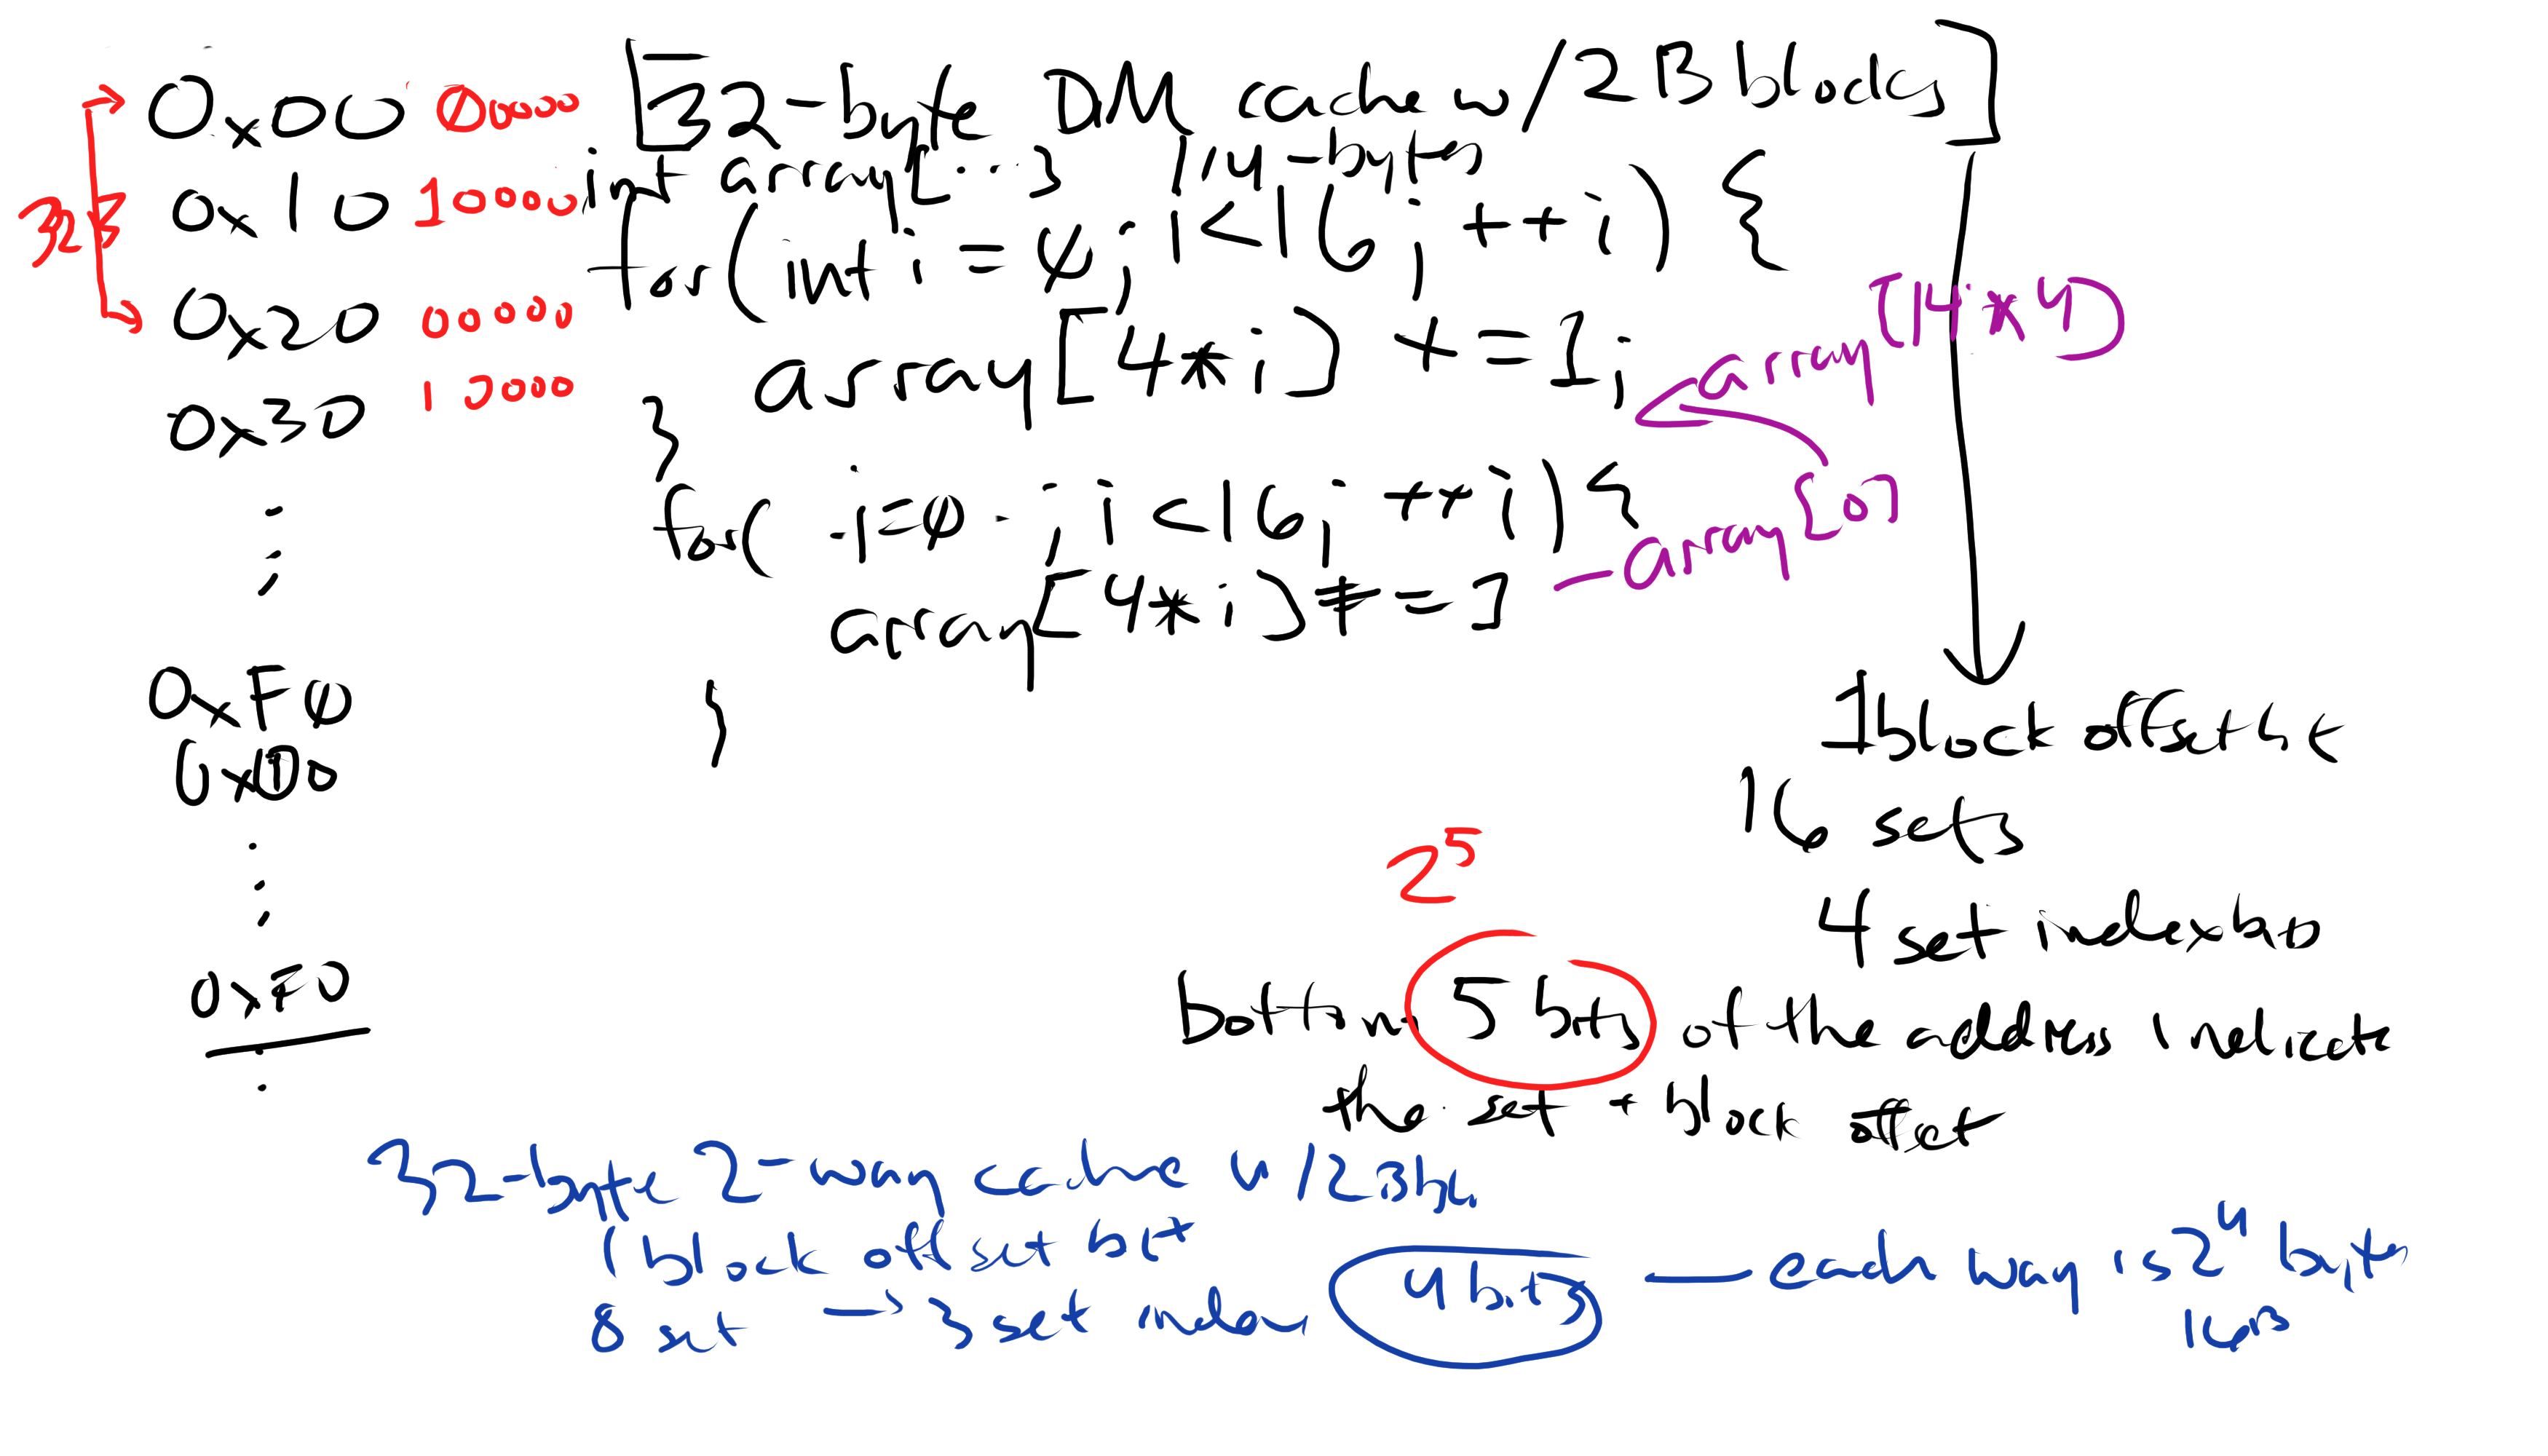 0x00 00000
0x10 10000
32B
0x20 00000
0x30 10000
0xF0
0x00
0xF0
[32-byte DM cache w/2B blocks]
int array[...] // 4-bytes
for(int i = 0; i<16; ++i) {
array[4*i] += 1;
}
array[14*4]
for( i=0 ; i<16; ++i){
array[0]
array[4*i] += 1
}
1 block offset bit
16 sets
4 set index bits
2^5
bottom 5 bits of the address indicate
the set + block offset
32-byte 2-way cache w/2B blk
1 block offset bit
8 set → 3 set index 4 bits — each way is 2^4 bytes
16B